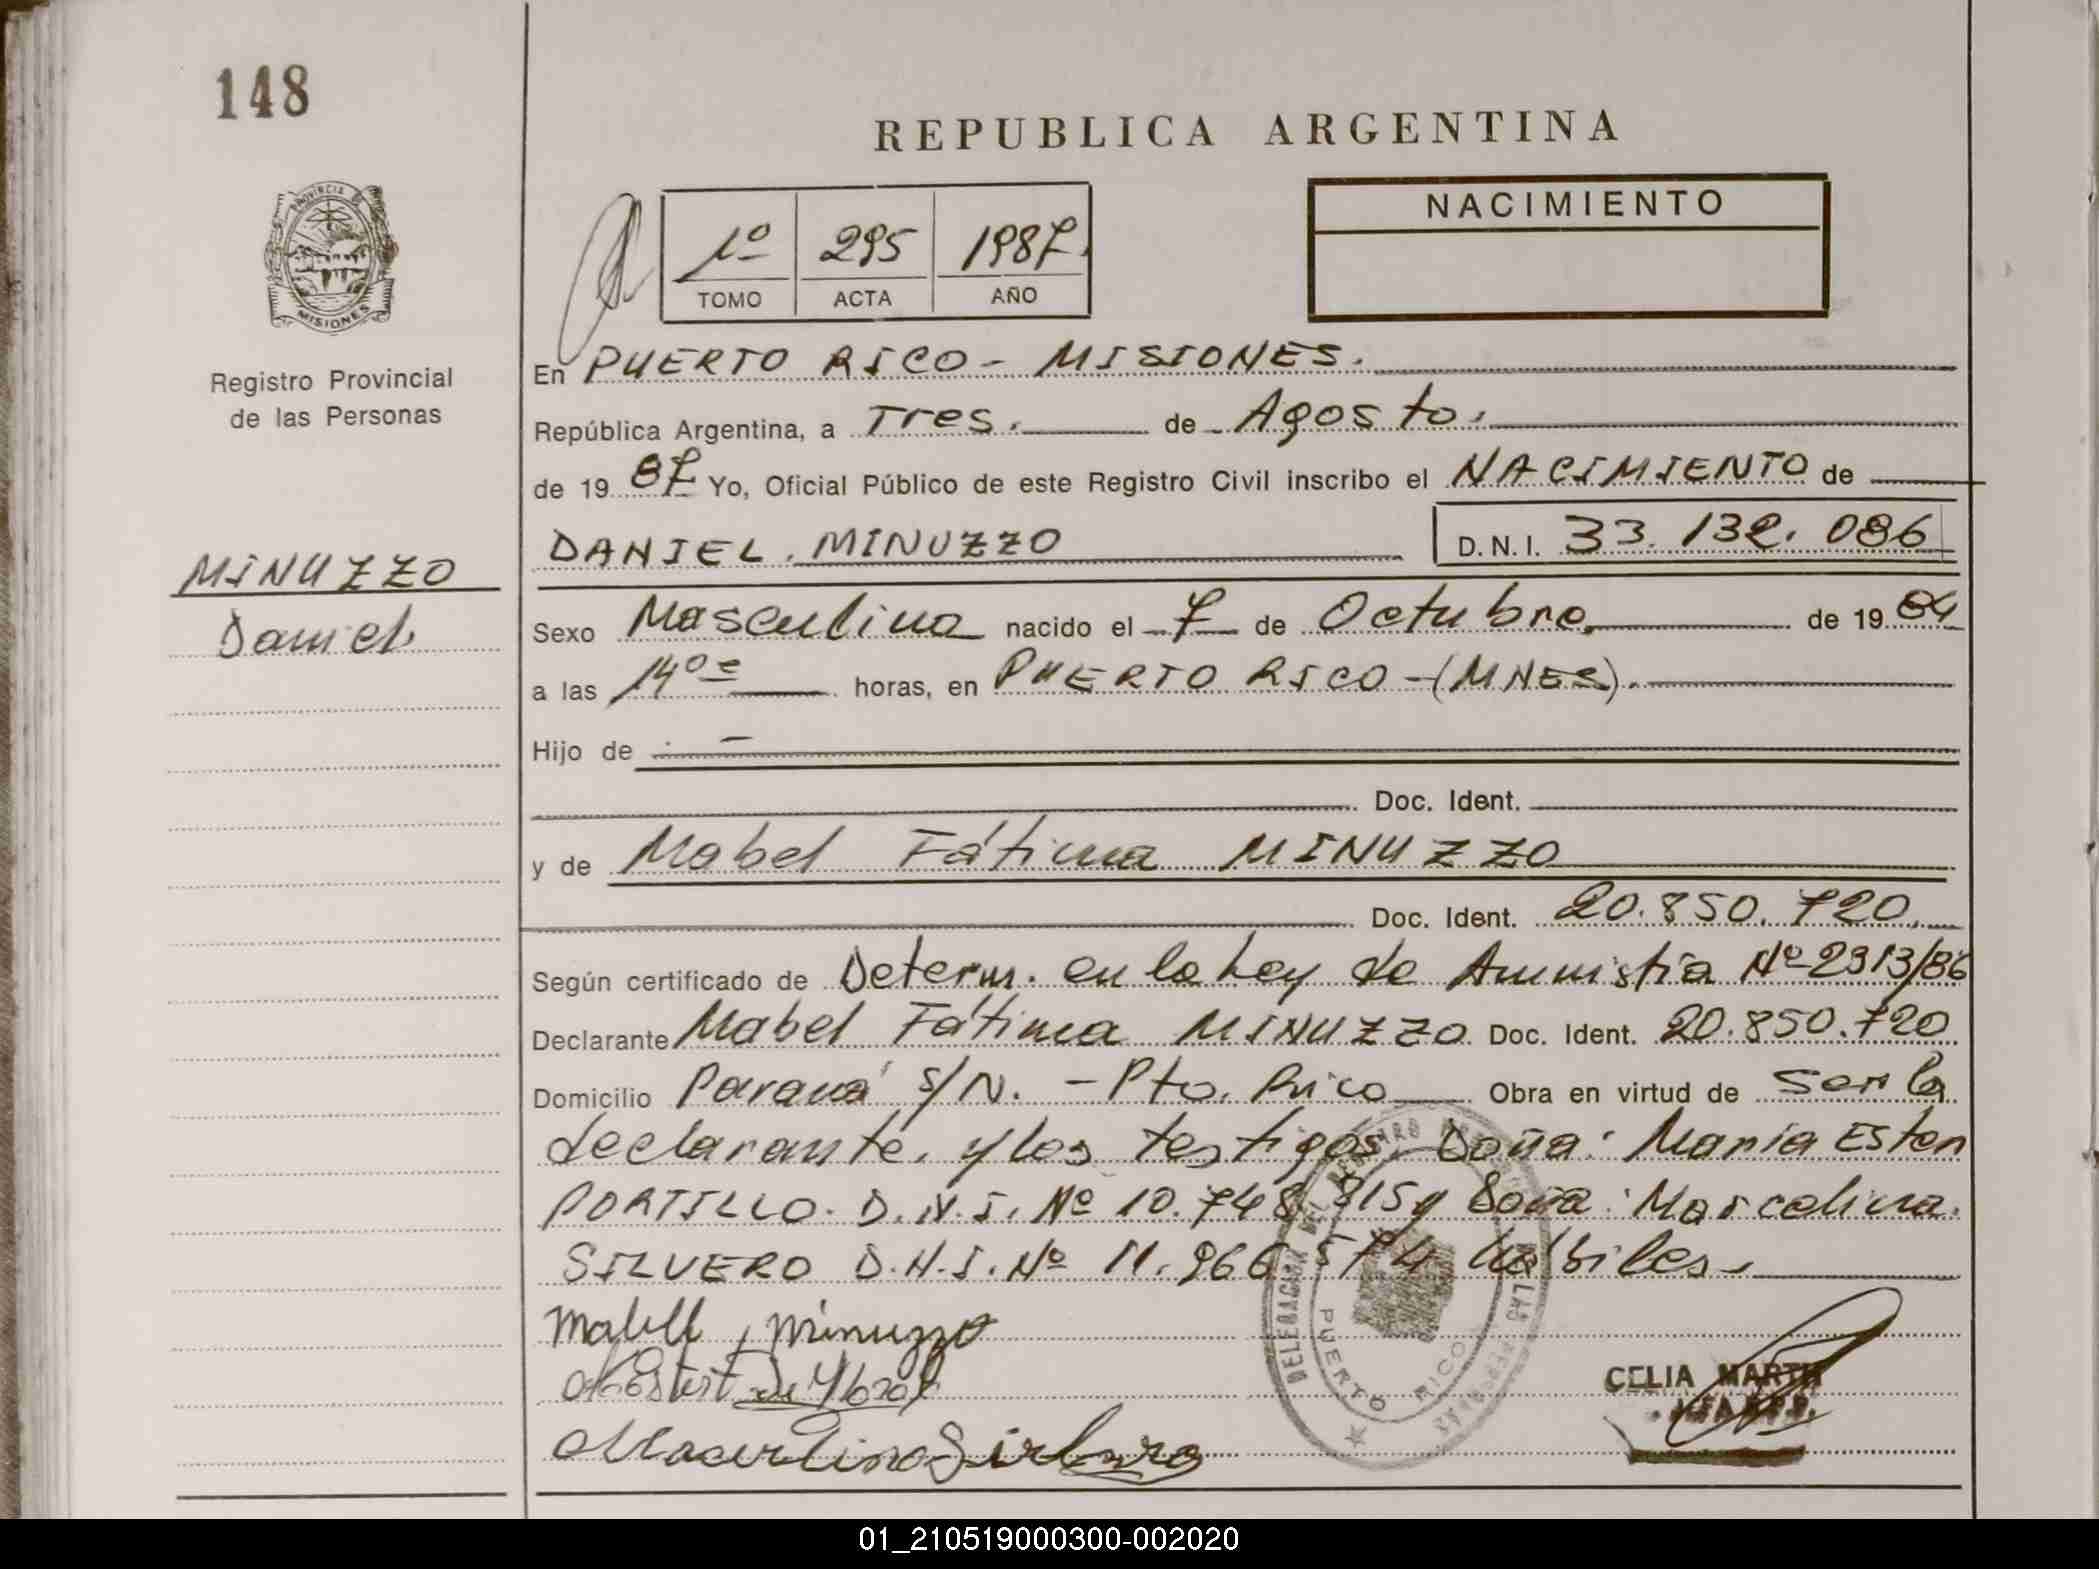 148
REPUBLICA ARGENTINA
PROVINCIA DE
MISIONES
Registro Provincial
de las Personas
NACIMIENTO
1º 295 1987.
TOMO ACTA AÑO
En PUERTO RICO - MISIONES.
República Argentina, a Tres. de Agosto.
de 19 87 Yo, Oficial Público de este Registro Civil inscribo el NACIMIENTO de
MINUZZO
Daniel
DANIEL. MINUZZO D.N.I. 33.132.086
Sexo Masculino nacido el 7 de Octubre, de 19 84
a las 14⁰⁰ horas, en PUERTO RICO - (MNES).
Hijo de -
Doc. Ident.
y de Mabel Fátima MINUZZO
Doc. Ident. 20.850.720.
Según certificado de Determ. en la Ley de Amnistía Nº 2313/86
Declarante Mabel Fátima MINUZZO Doc. Ident. 20.850.720
Domicilio Paraná s/N. - Pto. Rico Obra en virtud de Ser la
declarante, y los testigos, Doña: María Ester
PORTILLO. D.N.I. Nº 10.748.815 y Doña: Marcelina
SILVERO D.N.I. Nº 11.966.574 hábiles.
Mabel F, Minuzzo
DELEGACION DEL REGISTRO PROVINCIAL DE LAS PERSONAS
PUERTO RICO
CELIA MARTH
01_210519000300-002020